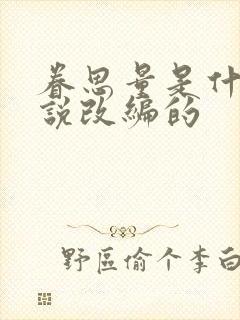 眷思量是什
說改編的
野區偷个李白